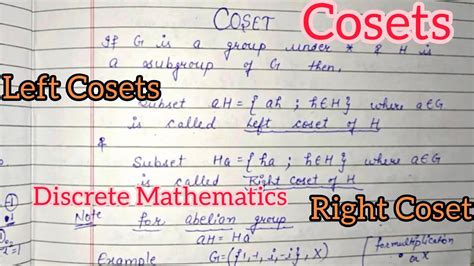 COSET
Cosets
If G is a group under * & H is
a subgroup of G then,
Left Cosets
Subset aH = { ah ; h∈H } where a∈G
is called left coset of H
&
Subset Ha = { ha ; h∈H } where a∈G
is called Right coset of H
Discrete Mathematics
Right Coset
Note for abelian group
aH = Ha
Example G = ({1, -1, i, -i}, X)
for multiplication